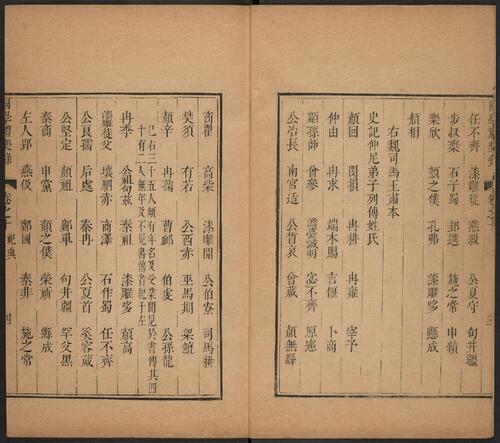 任不齊 漆雕從 燕級 公夏守 句井疆
步叔椉 石子蜀 邽選 施之常 申績
樂欣 顏之僕 孔弗 漆雕哆 懸成
顏相
右魏司馬王肅本
史記仲尼弟子列傳姓氏
顏回 閔損 冉耕 冉雍 宰予
仲由 冉求 端木賜 言偃 卜商
顓孫師 曾參 澹臺滅明 宓不齊 原憲
公冶長 南宮适 公晳哀 曾蒧 顏無繇
商瞿 高柴 漆雕開 公伯寮 司馬耕
樊須 有若 公西赤 巫馬期 梁鱣
顏辛 冉孺 曹卹 伯虔 公孫龍
已右三十五人頗有年名及受業聞見於書傳其四
十有二人無年及不見書傳者紀于左
冉季 公祖句茲 秦祖 漆雕哆 顏高
漆雕徒父 壤駟赤 商澤 石作蜀 任不齊
公良孺 后處 秦冉 公夏首 奚容蒧
公堅定 顏祖 鄡單 句井疆 罕父黑
秦商 申黨 顏之僕 榮旂 縣成
左人郢 燕伋 鄭國 秦非 施之常
國學禮樂錄 卷之十 祀典 四